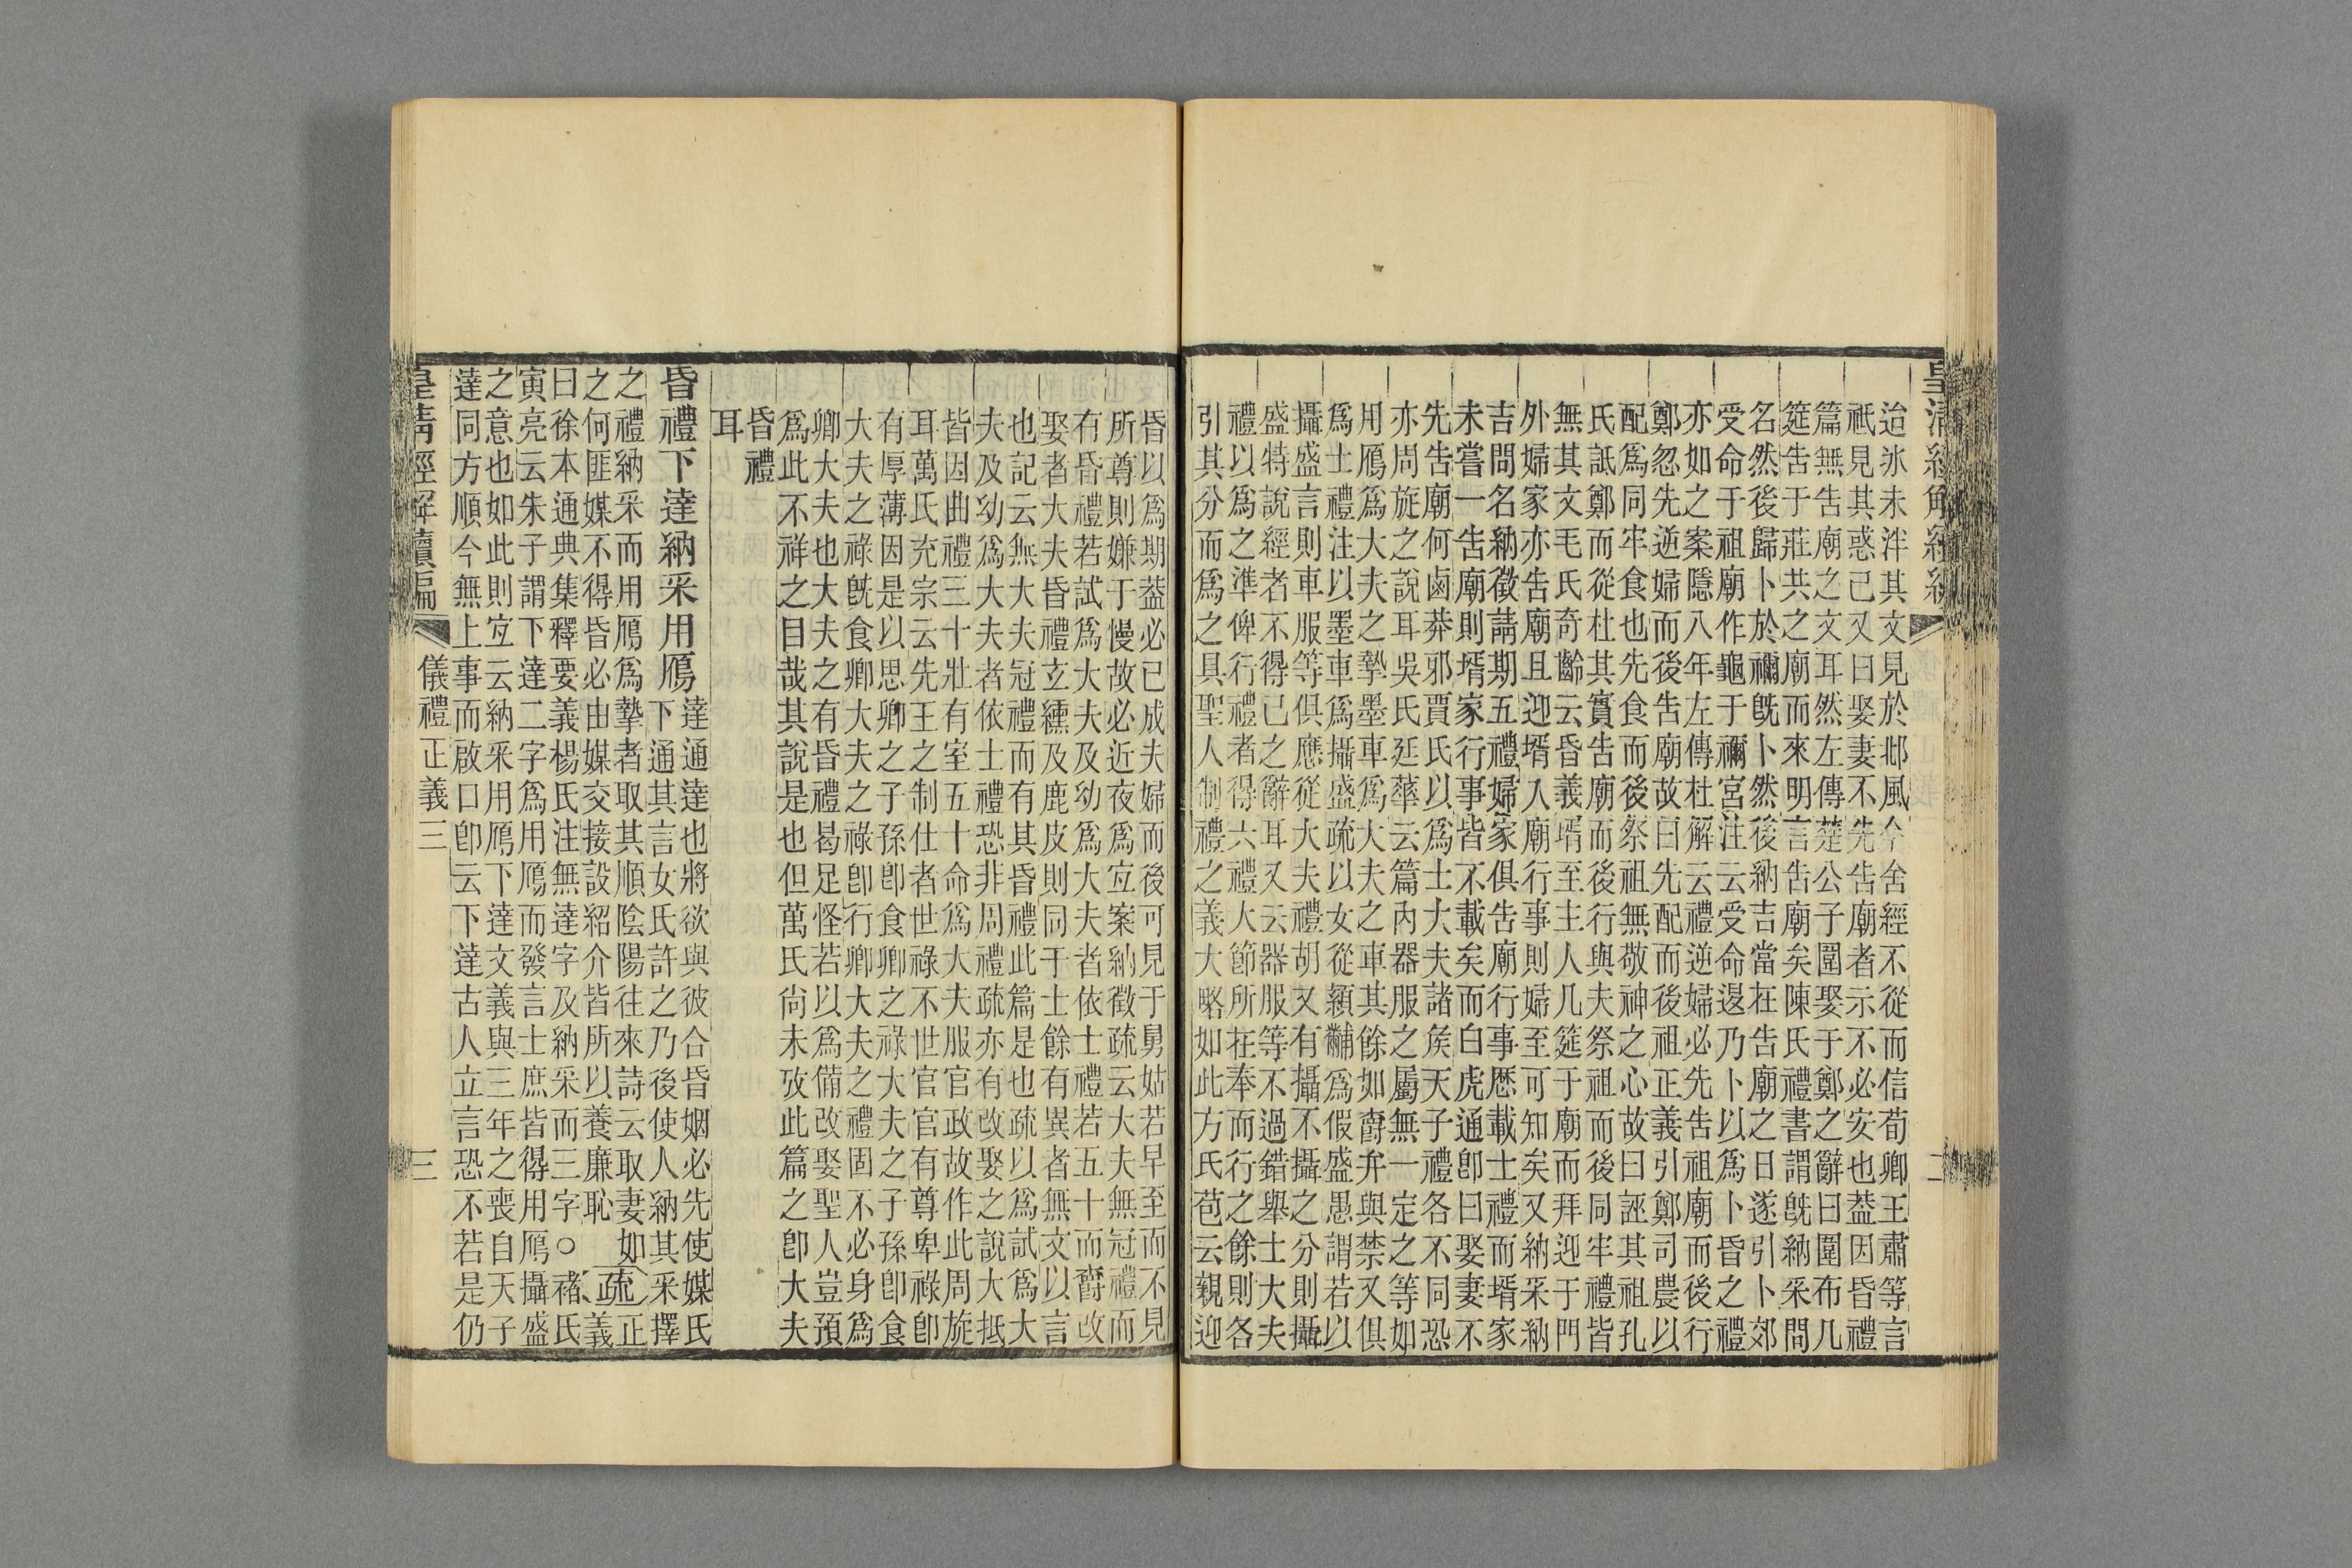 迨冰未泮其文見於邶風今舍經不從而信荀卿王肅等言
祇見其惑已又曰娶妻不先告廟者示不必安也葢因昏禮
篇無告廟之文耳然左傳楚公子圍娶于鄭之辭曰圍布几
筵告于莊共之廟而來明言告廟矣陳氏禮書謂旣納采問
名然後歸卜於禰旣卜然後納吉當在告廟之日遂引卜郊
受命于祖廟作龜于禰宮注云受命退乃卜以爲卜昏之禮
亦如之案隱八年左傳杜解云禮逆婦必先告祖廟而後行
鄭忽先逆婦而後告廟故曰先配而後祖正義引鄭司農以
配爲同牢食也先食而後祭祖無敬神之心故曰誣其祖孔
氏詆鄭而從杜其實告廟而後行與夫祭祖而後同牢禮皆
無其文毛氏奇齡云昏義壻至主人几筵于廟而拜迎于門
外婦家亦告廟且迎壻入廟行事則婦至可知矣又納采納
吉問名納徵請期五禮婦家俱告廟行事歷載士禮而壻家
未嘗一告廟則壻家行事皆不載矣而白虎通卽曰娶妻不
先告廟何鹵莽邪賈氏以爲士大夫諸矦天子禮各不同恐
亦周旋之說耳吳氏廷華云篇內器服之屬無一定之等如
用鴈爲大夫之摯墨車爲大夫之車其餘如爵弁與禁又俱
爲士禮注以墨車爲攝盛疏以女從潁黼爲假盛愚謂若以
攝盛言則車服等俱應從大夫禮胡又有攝不攝之分則攝
盛特說經者不得已之辭耳又云器服等不過錯舉士大夫
禮以爲之準俾行禮者得六禮大節所在奉而行之餘則各
引其分而爲之具聖人制禮之義大略如此方氏苞云親迎
昏以爲期葢必已成夫婦而後可見于舅姑若早至而不見
所尊則嫌于慢故必近夜爲宜案納徵疏云大夫無冠禮而
有昏禮若試爲大夫及幼爲大夫者依士禮若五十而爵改
娶者大夫昏禮玄纁及鹿皮則同于士餘有異者無文以言
也記云無大夫冠禮而有其昏禮此篇是也疏以爲試爲大
夫及幼爲大夫者依士禮恐非周禮疏亦有改娶之說大抵
皆因曲禮三十壯有室五十命爲大夫服官政故作此周旋
耳萬氏充宗云先王之制仕者世祿不世官官有尊卑祿卽
有厚薄因是以思卿之子孫卽食卿之祿大夫之子孫卽食
大夫之祿旣食卿大夫之祿卽行卿大夫之禮固不必身爲
卿大夫也大夫之有昏禮曷足怪若以爲備改娶聖人豈預
爲此不祥之目哉其說是也但萬氏尚未攷此篇之卽大夫
昏禮
耳
昏禮下達納采用鴈
達通達也將欲與彼合昏姻必先使媒氏
下通其言女氏許之乃後使人納其采擇
之禮納采而用鴈爲摯者取其順陰陽往來詩云取妻如
之何匪媒不得昏必由媒交接設紹介皆所以養廉恥
疏
正
義
曰徐本通典集釋要義楊氏注無達字及納采而三字○褚氏
寅亮云朱子謂下達二字爲用鴈而發言士庶皆得用鴈攝盛
之意也如此則宜云納采用鴈下達文義與三年之喪自天子
達同方順今無上事而啟口卽云下達古人立言恐不若是仍
皇清經解續編
儀禮正義三
三